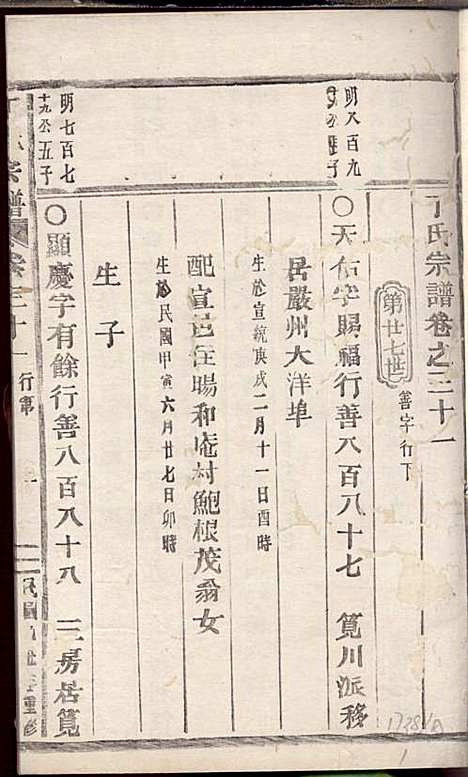 丁氏宗譜卷之三十一
第廿七世
善字行下
明八百九
十公子
○天佑字賜福行善八百八十七 筧川派移
居嚴州大洋埠
生於宣統庚戌二月十一日酉時
配宣邑在陽和庵村鮑根茂翁女
生於民國甲寅六月廿七日卯時
生子
明七百七
十九公五子
○顯慶字有餘行善八百八十八 三房居筧
宗譜 卷三十一 行第 一
民國 重修
1738/A
1